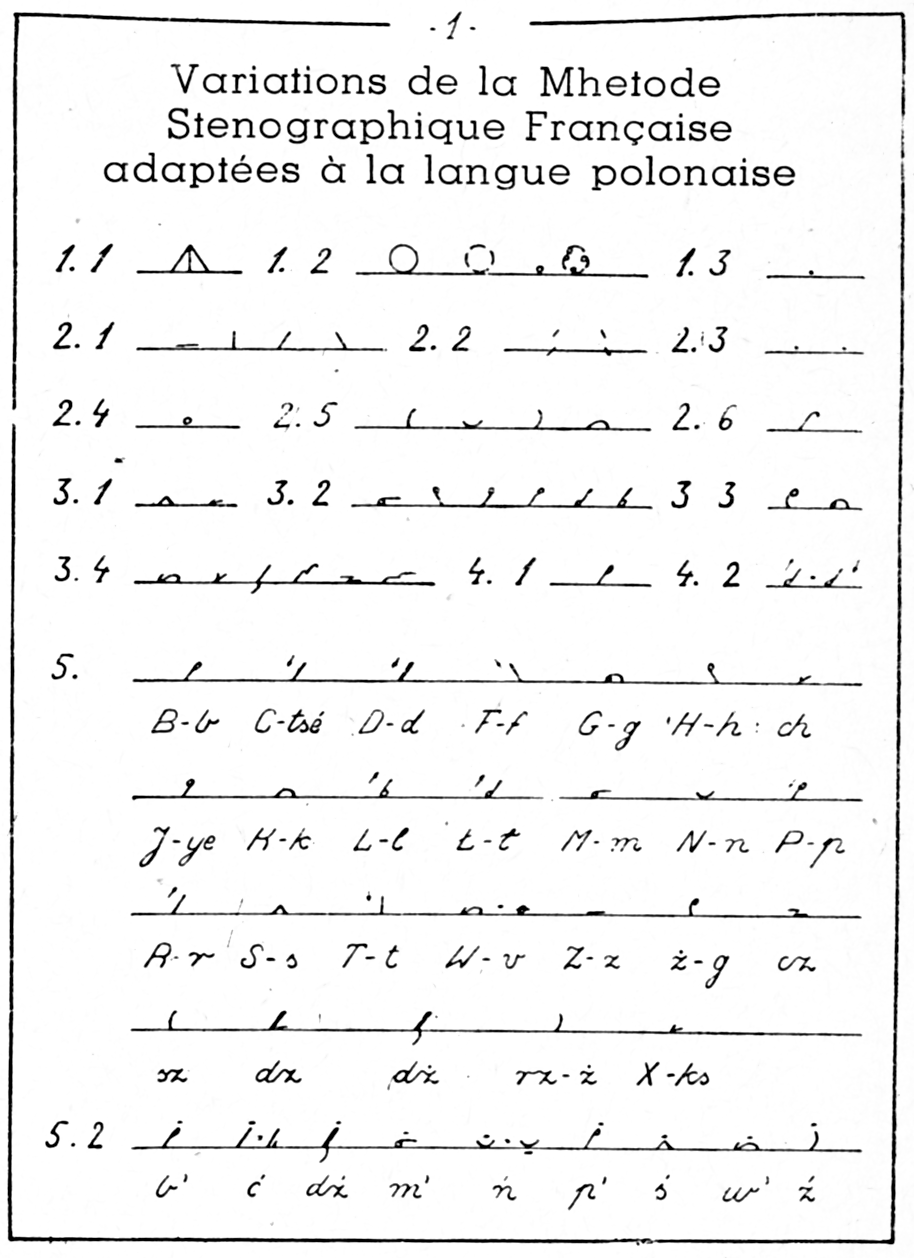 - 1 -
Variations de la Mhetode
Stenographique Française
adaptées à la langue polonaise
1.1 1. 2 1. 3
2.1 2. 2 2. 3
2.4 2. 5 2. 6
3. 1 3. 2 3 3
3.4 4. 1 4. 2
5.
B-b C-tsé D-d F-f G-g H-h: ch
J-ye K-k L-l Ł-ł M-m N-n P-p
R-r S-s T-t W-v Z-z ż-g cz
sz dz dż rz-ż X-ks
5.2
b' ć dź m' ń p' ś w' ź